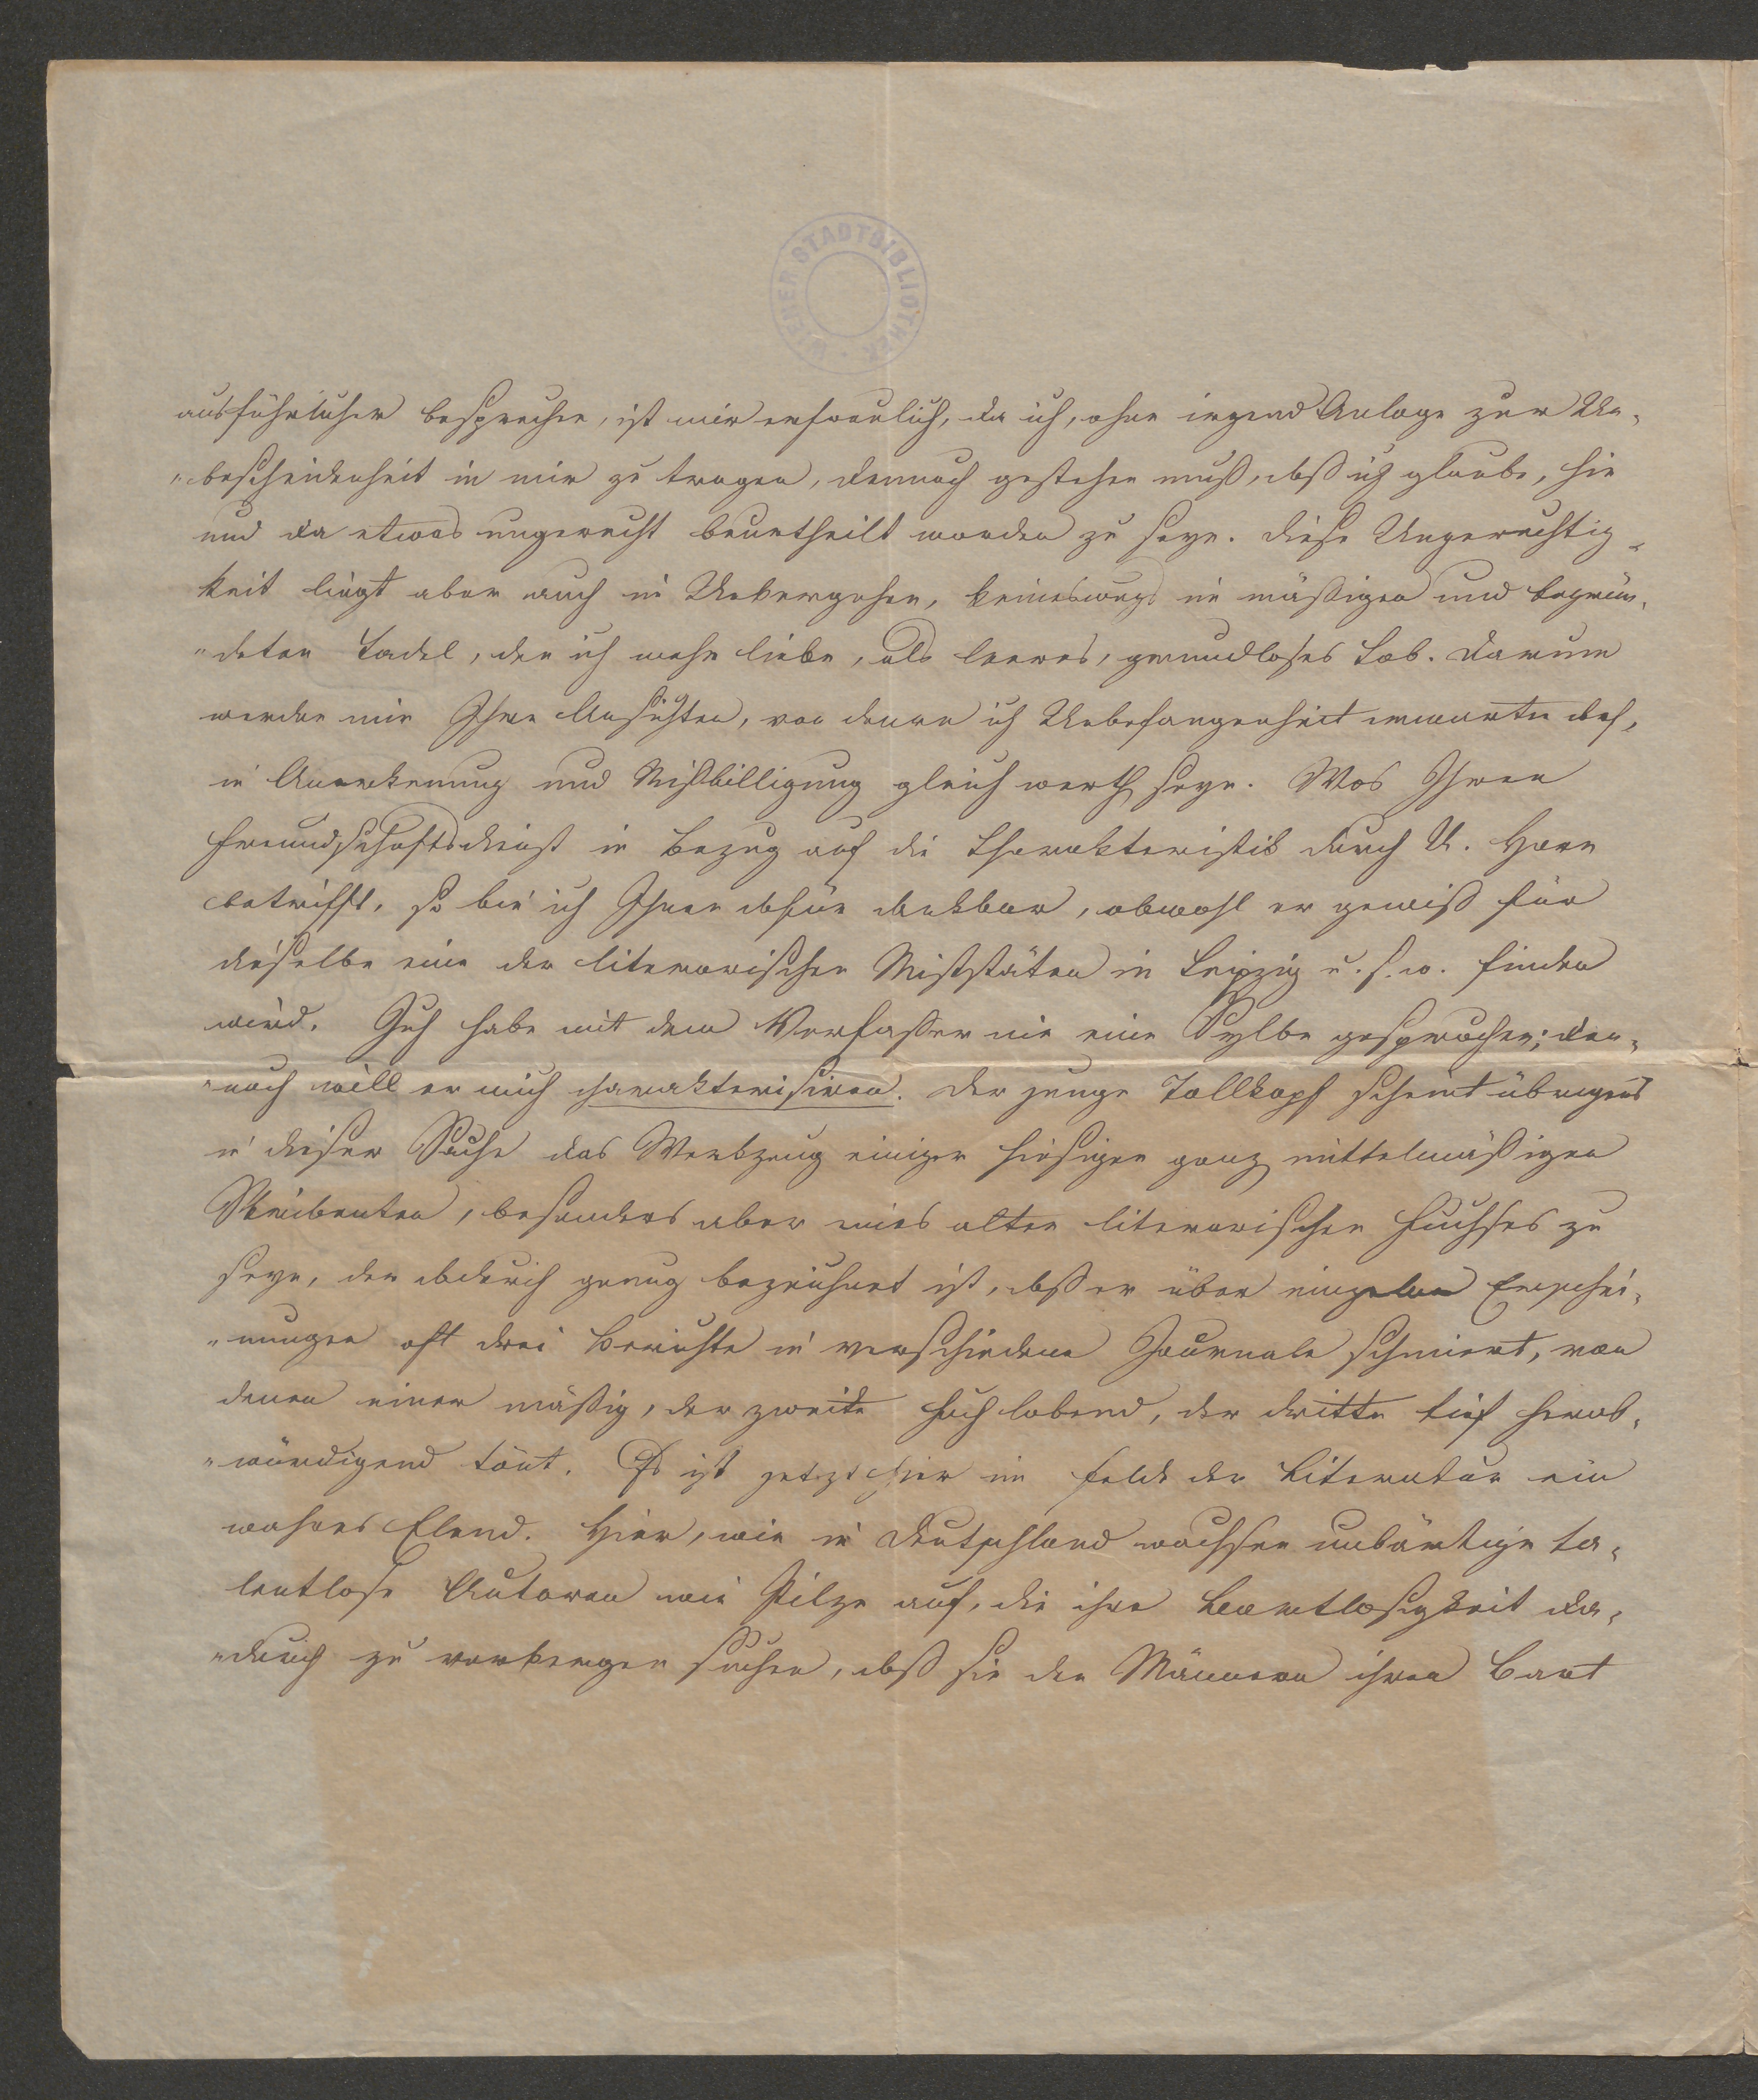 WIENER STADTBIBLIOTHEK
ausführlicher besprechen, ist mir erfreulich, da ich, ohne irgend Anlage zur Un-
-bescheidenheit in mir zu tragen, dennoch gestehen muß, daß ich glaube, hie
und da etwas ungerecht beurtheilt worden zu seyn. Diese Ungerechtig-
keit liegt aber auch in Uebergehen, keineswegs in mäßigen und begrün-
-deten Tadel, den ich mehr liebe, als leeres, grundloses Lob. Darum
werden mir Ihre Ansichten, von denen ich Unbefangenheit erwarten darf,
in Anerkennung und Mißbilligung gleich werth seyn. Was Ihren
Freundschaftsdienst in Bezug auf die Charakteristik durch U. Horn
betrifft, so bin ich Ihnen dafür dankbar, obwohl er gewiß für
dieselbe eine der literarischen Miststäten in Leipzig u. s. w. finden
wird. Ich habe mit dem Verfasser nie eine Sylbe gesprochen; den-
-noch will er mich charakterisiren. Der junge Tollkopf scheint übrigens
in dieser Sache das Werkzeug einiger hiesigen ganz mittelmäßigen
Skribenten, besonders aber eines alten literarischen Fuchses zu
seyn, der dadurch genug bezeichnet ist, daß er über einzelne Erschei-
-nungen oft drei Berichte in verschiedene Journale schmiert, von
denen einer mäßig, der zweite hoch lobend, der dritte tief herab-
-würdigend tönt. Es ist jetzt hier im Felde der Literatur ein
wahres Elend. Hier, wie in Deutschland wachsen unbärtige ta-
lentlose Autoren wie Pilze auf, die ihre Bartlosigkeit da-
-durch zu verbergen suchen, daß sie den Männern ihren Bart